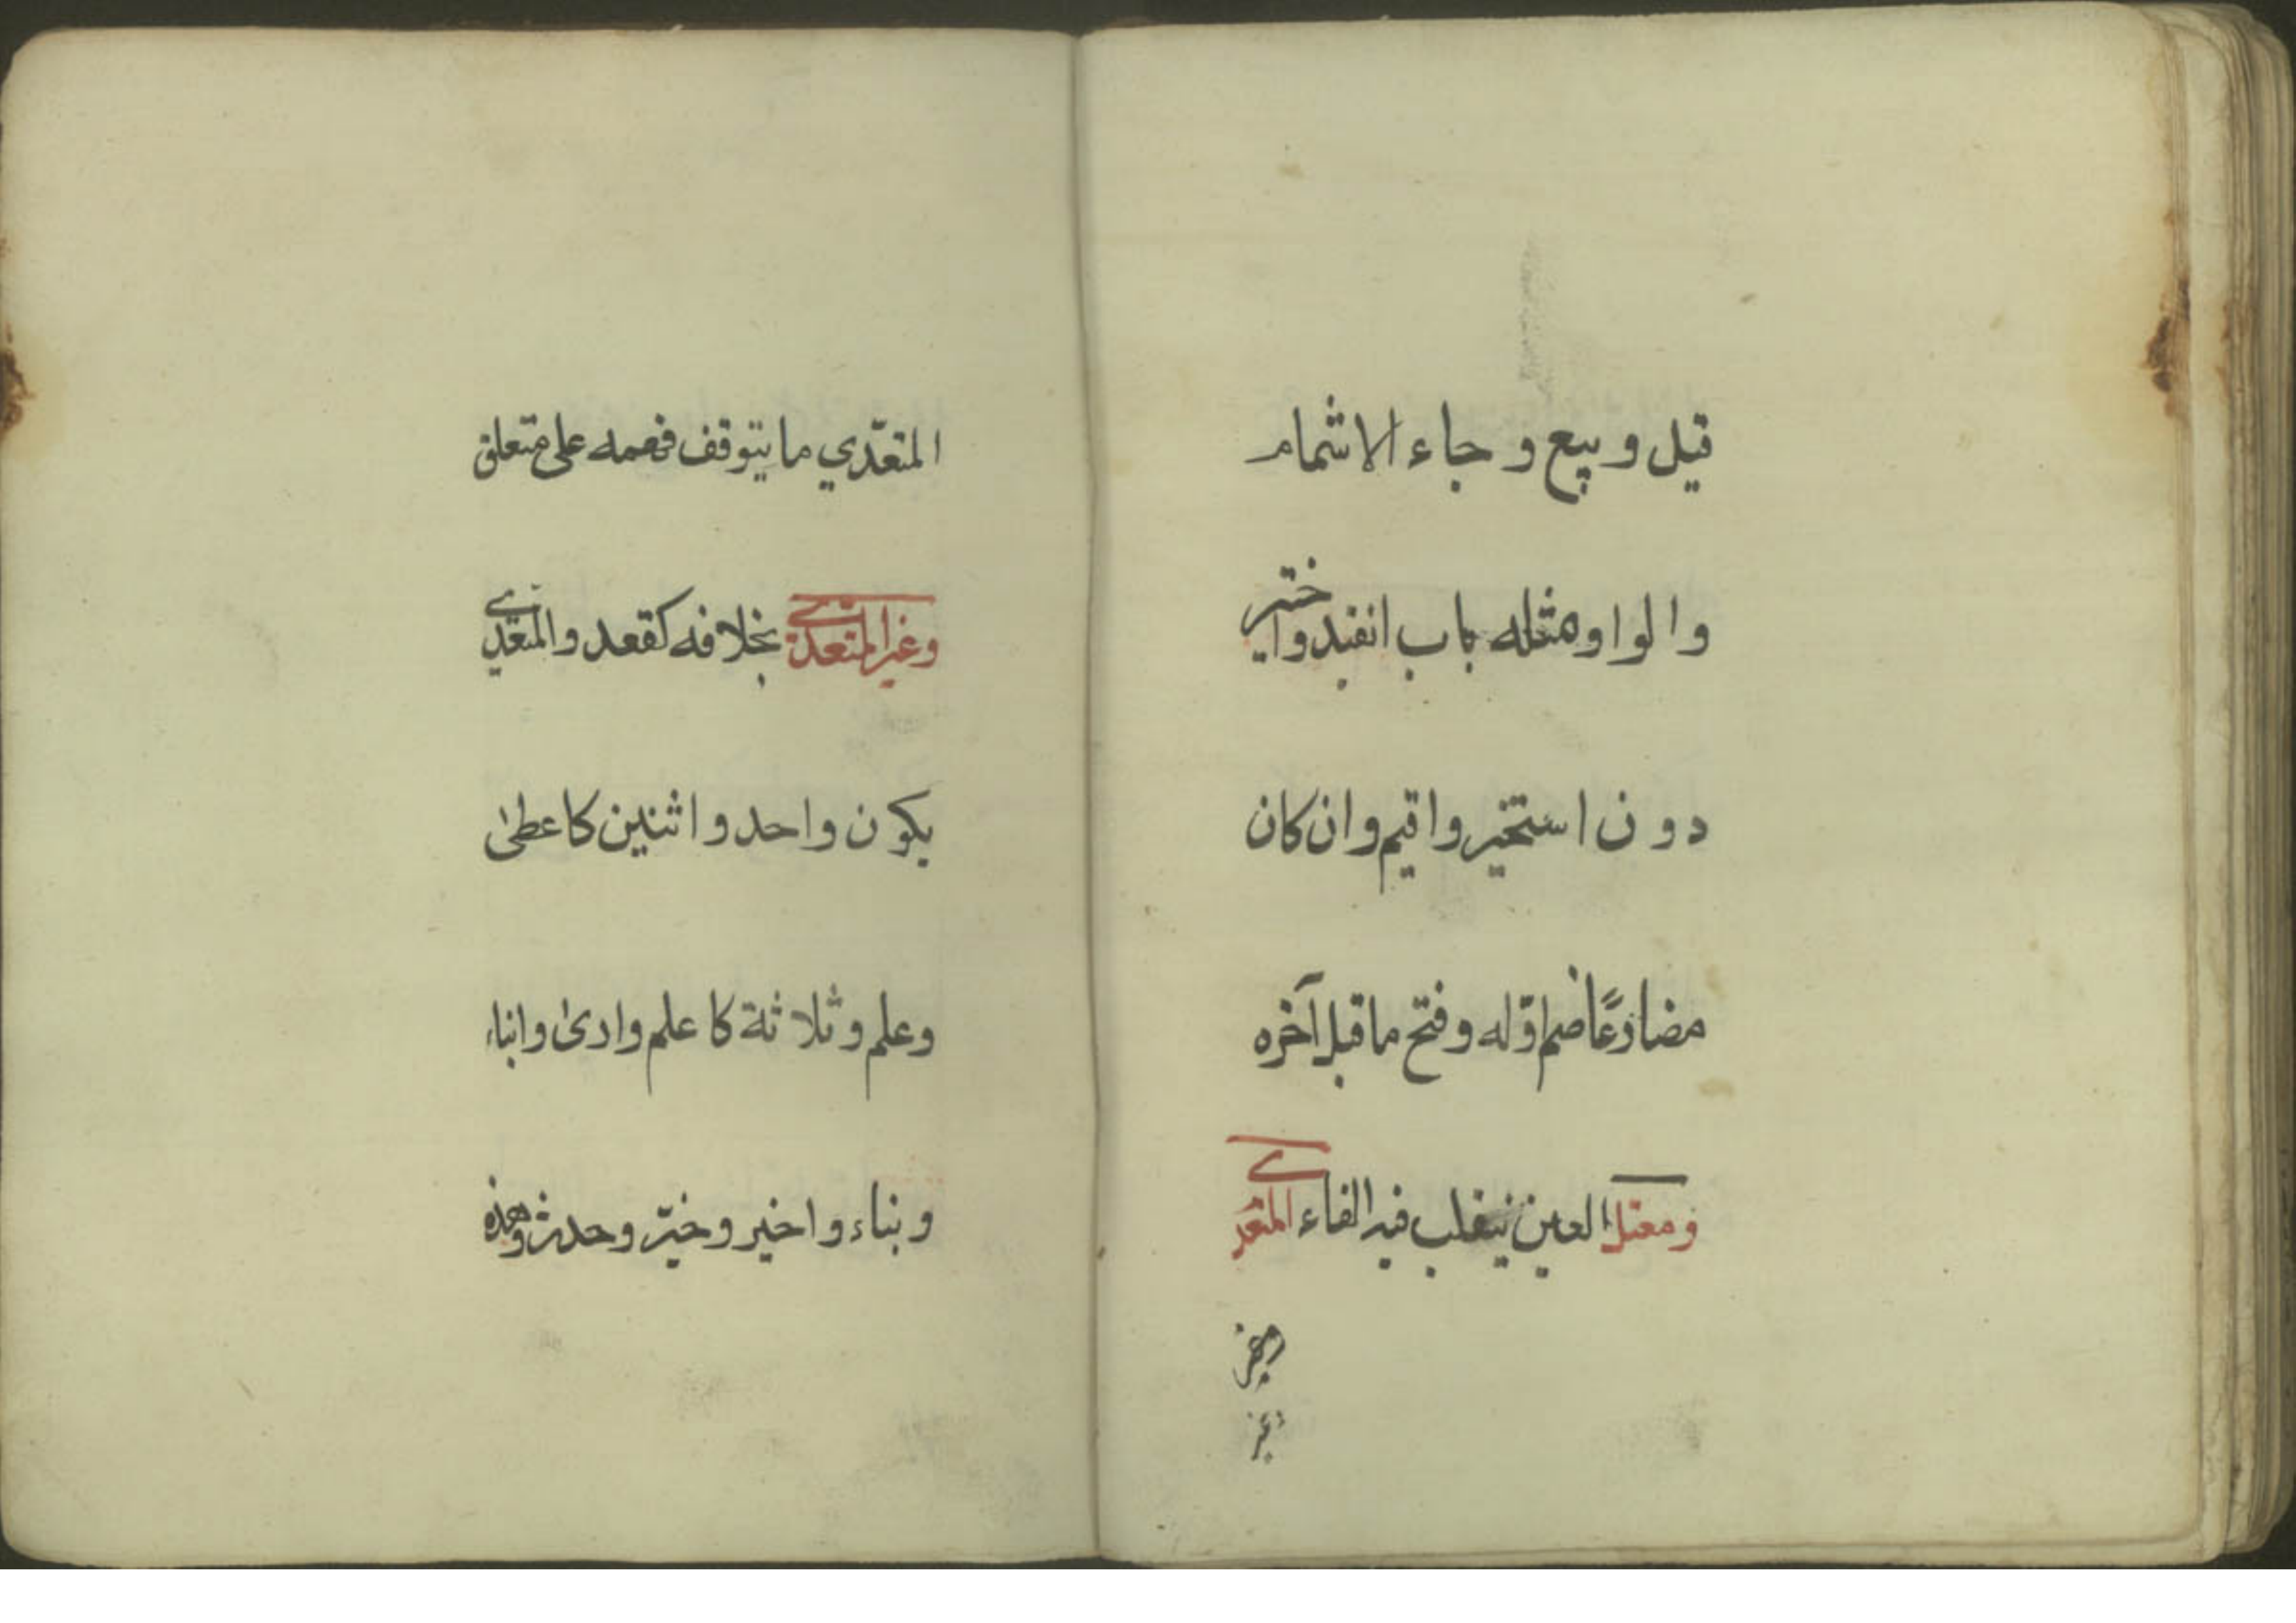 قيل وبيع وجاء الاشمام
والواو ومثله باب انقيد واختير
دون استخير واقيم وان كان
مضارعًا ضم اوّله وفتح ما قبل آخره
ومعتل العين ينقلب فيه الفاء المتعدي
المتعدّي ما يتوقف فهمه على متعلق
وغير المتعدي بخلافه كقعد والمتعدي
يكون واحد واثنين كاعطى
وعلم وثلاثة كاعلم وارى وانباء
ونباء واخبر وخبّر وحدث وهذه